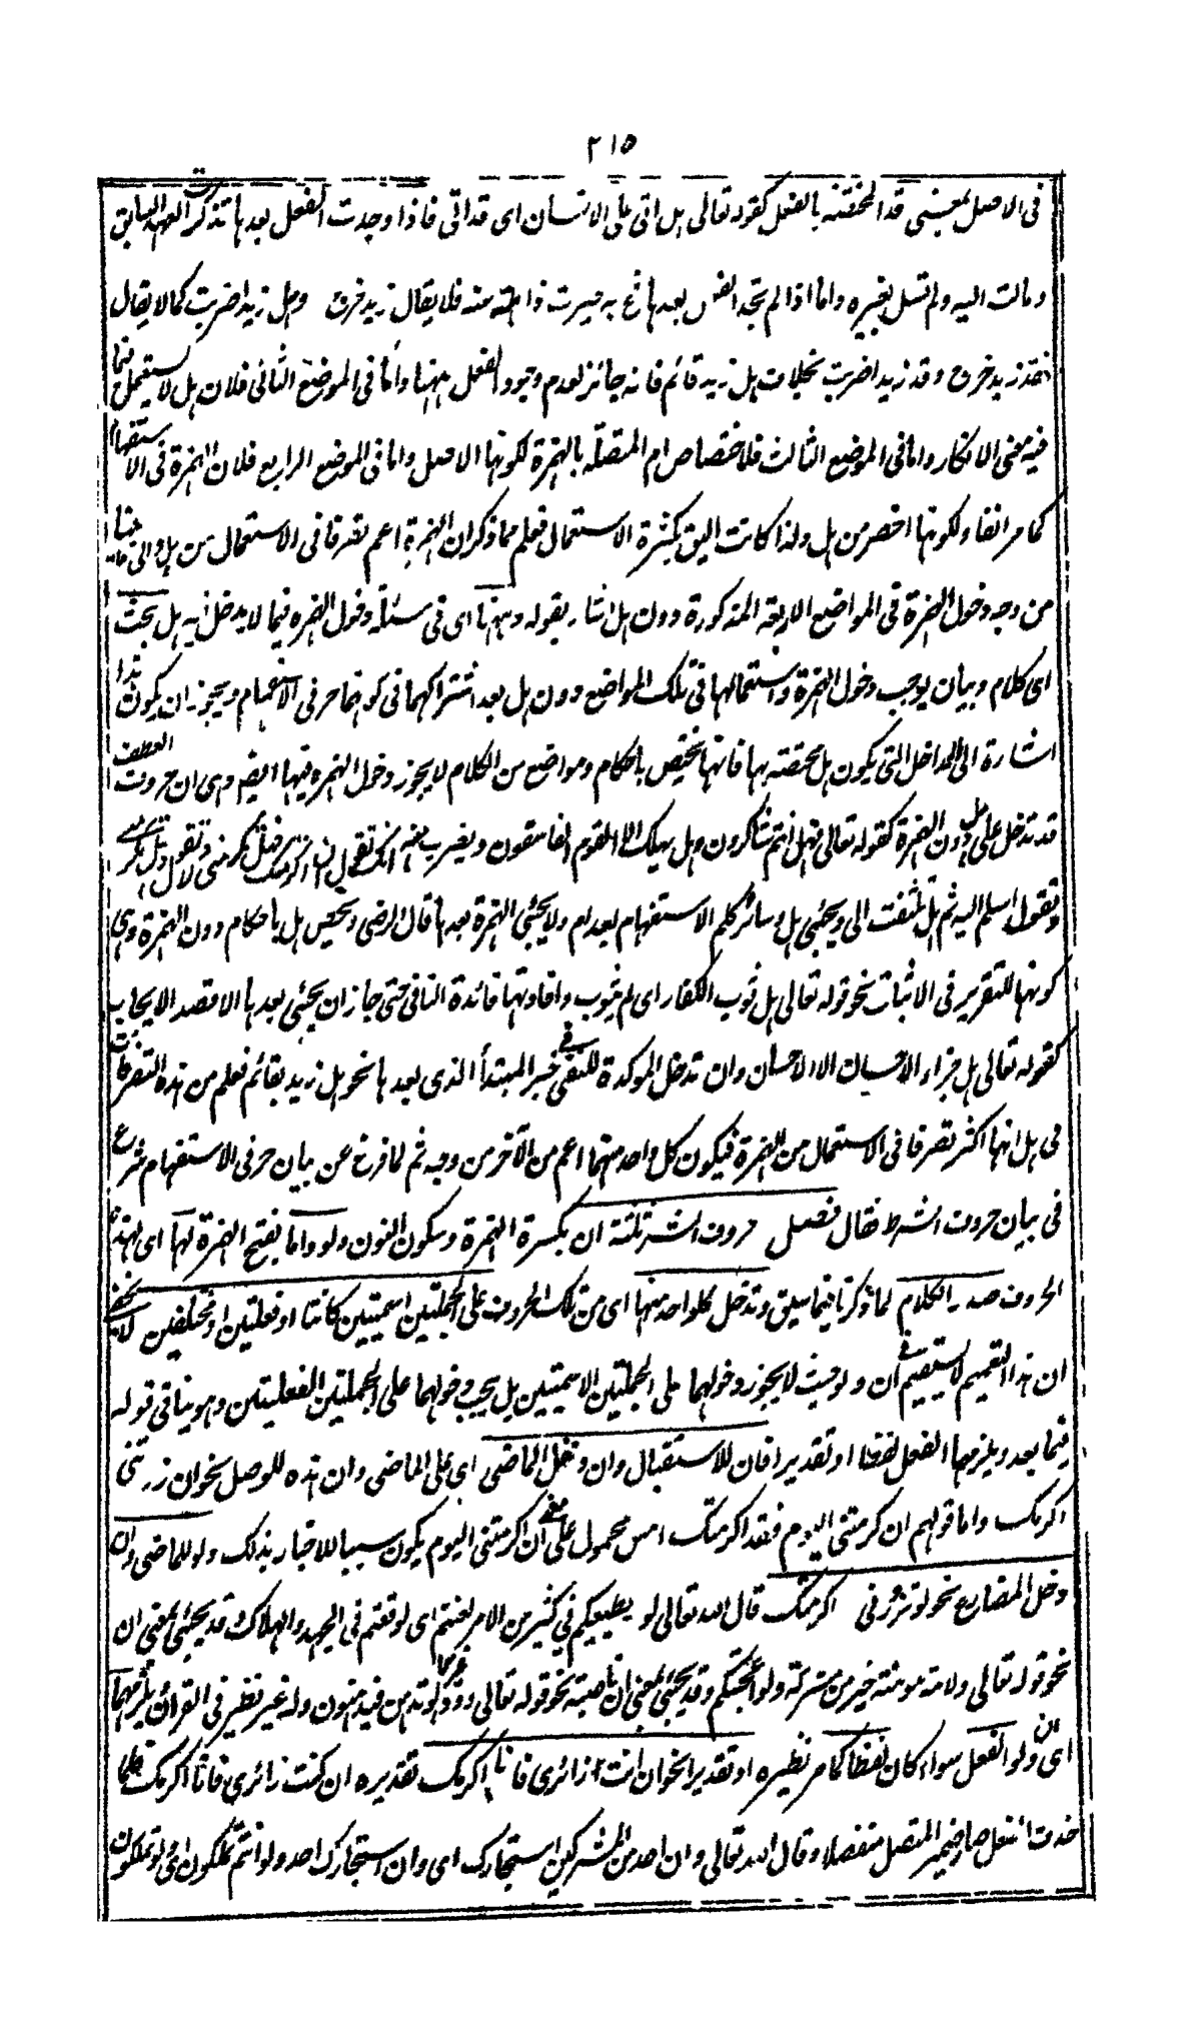 ٢١٥
فى الاصل بمعنى قد المختصة بالفعل كقوله تعالى هل اتى على الانسان اى قد اتى فاذا وجدت الفعل بعدها تذكرت العهد السابق
ومالت اليه ولم تسل بغيره واما اذا لم تجد الفعل بعدها صيرت ذاهلة عنه فلا يقال زيد خرج وهل زيدا ضربت كما لا يقال
قد زيد خرج وقد زيدا ضربت بخلاف هل زيد قائم فانه جائز لعدم وجود الفعل ههنا واما فى الموضع الثانى فلان هل لا يستعمل فيما
فيه معنى الانكار واما فى الموضع الثالث فلاختصاص ام المتصلة بالهمزة لكونها الاصل واما فى الموضع الرابع فلان الهمزة فى الاستفهام
كما مر انفا ولكونها اخصر من هل ولذا كانت اليق بكثرة الاستعمال فعلم مما ذكر ان الهمزة اعم تصرفا فى الاستعمال من هل والى
من وجه دخول الهمزة فى المواضع الاربعة المذكورة دون هل اشار بقوله وههنا اى فى مسئلة دخول الهمزة فيما لا يدخل فيه هل بحث
اى كلام وبيان يوجب دخول الهمزة واستعمالها فى تلك المواضع دون هل بعد اشتراكهما فى كونهما حرفى الاستفهام ويجوز ان يكون هذا
اشارة الى المداخل التى يكون هل مختصة بها فانها تختص باحكام ومواضع من الكلام لا يجوز دخول الهمزة فيها ايضا وهى ان حروف العطف
قد تدخل على هل دون الهمزة كقوله تعالى فهل انتم شاكرون وهل يهلك الا القوم الفاسقون
وتقول اسلم اليه ثم هل تلتفت الى ويجئ هل وسائر كلم الاستفهام بعد ام ولا يجئ الهمزة بعدها قال الرضى وتختص هل باحكام دون الهمزة وهى
كونها للتقرير فى الاثبات نحو قوله تعالى هل ثوب الكفار اى لم يثوب وافادتها فائدة النافى حتى جاز ان يجئ بعدها الا لقصد الايجاب
كقوله تعالى هل جزاء الاحسان الا الاحسان وان تدخل المؤكدة للنفى فى خبر المبتدأ الذى بعدها نحو هل زيد بقائم فعلم من هذه التصرفات
فى هل انها اكثر تصرفا فى الاستعمال من الهمزة فيكون كل واحد منهما اعم من الآخر من وجه ثم لما فرغ عن بيان حرفى الاستفهام شرع
فى بيان حروف الشرط فقال فصل حروف الشرط ثلثة ان بكسرة الهمزة وسكون النون ولو واما بفتح الهمزة لها اى لهذه
الحروف صدر الكلام لما ذكرنا فيما سبق وتدخل كل واحد منها اى من تلك الحروف على الجملتين اسميتين كانتا او فعليتين او مختلفتين لا يخفى
ان هذا التعميم لا يستقيم فى ان ولو حيث لا يجوز دخولهما على الجملتين الاسميتين بل يجب دخولهما على الجملتين الفعليتين وهو ينافى قوله
فيما بعد ويلزمهما الفعل لفظا او تقديرا فان للاستقبال وان دخل الماضى اى على الماضى وان هذه للوصل نحو ان زرتنى
اكرمك واما قولهم ان كرمتنى اليوم فقد اكرمتك امس محمول على معنى ان اكرمتنى اليوم يكون سببا للاخبار بذلك ولو للماضى وان
دخل المضارع نحو لو تزرنى اكرمتك قال الله تعالى لو يطيعكم فى كثير من الامر لعنتم اى لوقعتم فى الجهد والهلاك وقد يجئ بمعنى ان
نحو قوله تعالى ولامة مومنة خير من مشركة ولو اعجبتكم وقد يجئ بمعنى ان ناصبة نحو قوله تعالى ودوا لو تدهن فيدهنون وله غير نظير فى القرآن ويلزمهما
اى ان ولو الفعل سواء كان لفظا كما مر نظيره او تقديرا نحو ان انت زائرى فانا اكرمك تقديره ان كنت زائرى فانا اكرمك فلما
حذف الفعل صار ضمير المتصل منفصلا وقال الله تعالى وان احد من المشركين استجارك اى وان استجارك احد ولو انتم تملكون اى لو تملكون